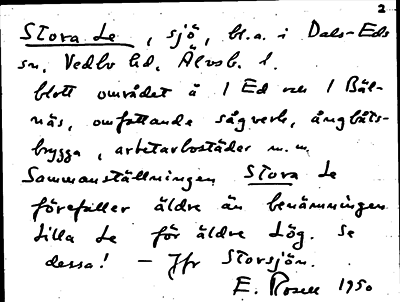 2
Stora Le, sjö, bl.a. i Dals-Eds
sn, Vedbo hd, Älvsb. l.
blott området å 1 Ed och 1 Bäl-
näs, omfattande sågverk, ångbåts-
brygga, arbetarbostäder m.m.
Sammanställningen Stora Le
förefaller äldre än benämningen
Lilla Le för äldre Lög. Se
dessa! — Jfr Storsjön.
E. Rosell 1950